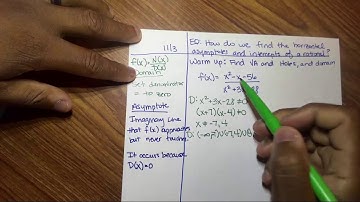 11/3
f(x) = N(x)
D(x)
Domain
Set denominator
= to zero
Asymptote
Imaginary Line
that f(x) approaches
but never touches
It occurs because
D(x)=0
EQ: How do we find the horizontal
asymptotes and intercepts of a rational?
Warm up: Find VA and Holes, and domain
f(x) = x²-x-56
D: x²+3x-28 ≠0
(x+7)(x-4) ≠0
x ≠ -7, 4